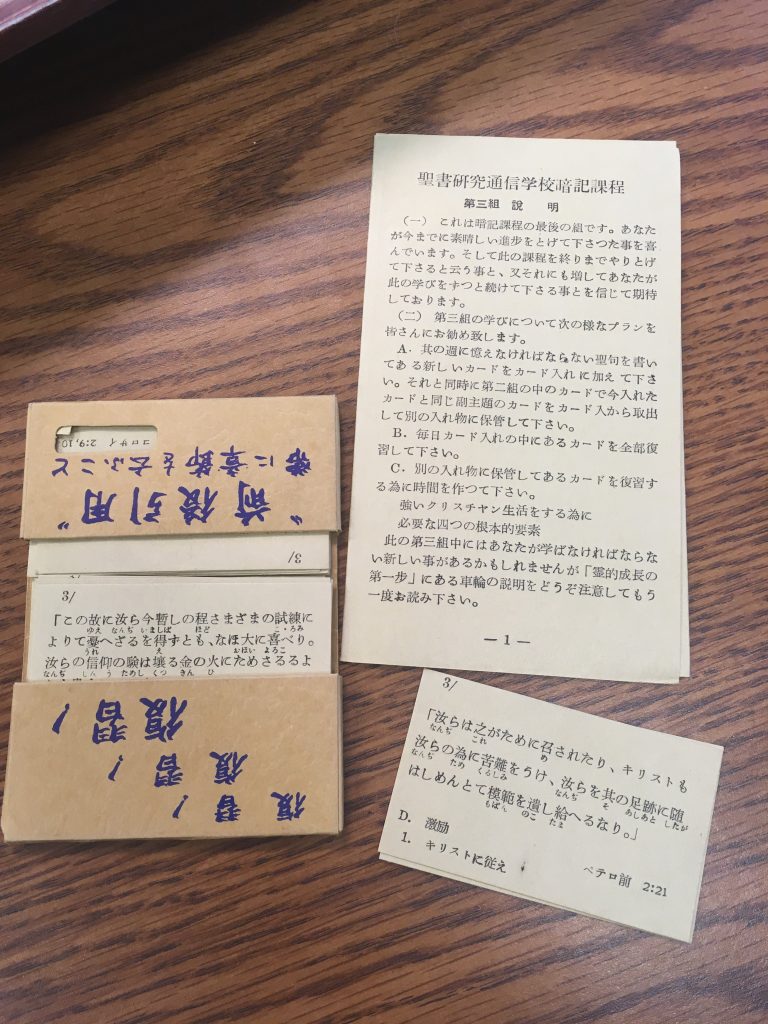 聖書研究通信学校暗記課程
第三組 説 明
(一) これは暗記課程の最後の組です。あなた
が今までに素晴しい進歩をとげて下さつた事を喜
んでいます。そして此の課程を終りまでやりとげ
て下さると云う事と、又それにも増してあなたが
此の学びをずつと続けて下さる事とを信じて期待
しております。
(二) 第三組の学びについて次の様なプランを
皆さんにお勧め致します。
A. 其の週に憶えなければならない聖句を書い
てある新しいカードをカード入れに加えて下さ
い。それと同時に第二組の中のカードで今入れた
カードと同じ副主題のカードをカード入から取出
して別の入れ物に保管して下さい。
B. 毎日カード入れの中にあるカードを全部復
習して下さい。
C. 別の入れ物に保管してあるカードを復習す
る為に時間を作つて下さい。
強いクリスチヤン生活をする為に
必要な四つの根本的要素
此の第三組中にはあなたが学ばなければならな
い新しい事があるかもしれませんが「霊的成長の
第一歩」にある車輪の説明をどうぞ注意してもう
一度お読み下さい。
— 1 —
コロサイ 2:9,10
"前後引用"
常に章節を云ふこと
3/
3/
「この故に汝ら今暫しの程さまざまの試練に
ゆえ なんぢ いましば ほど こゝろみ
よりて憂へざるを得ずとも、なほ大に喜べり。
うれ え おほい よろこ
汝らの信仰の験は壊る金の火にためさるるよ
なんぢ しんかう ためし くつ きん ひ
復習!
復習!
復習!
3/
「汝らは之がために召されたり、キリストも
なんぢ これ め
汝らの為に苦難をうけ、汝らを其の足跡に随
なんぢ ため くるしみ なんぢ そ あしあと したが
はしめんとて模範を遺し給へるなり。」
もはん のこ たま
D. 激励
1. キリストに従え
ペテロ前 2:21